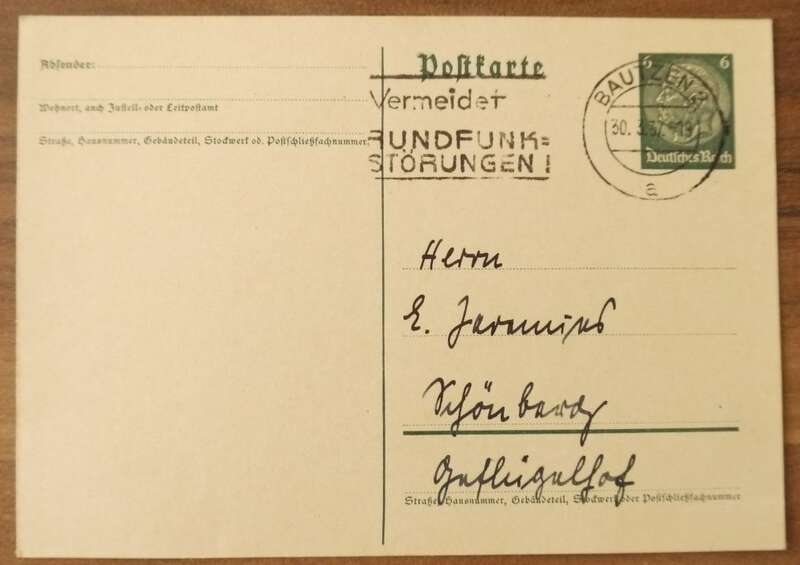 Absender:
Wohnort, auch Zustell- oder Leitpostamt
Straße, Hausnummer, Gebäudeteil, Stockwerk od. Postschließfachnummer
Postkarte
Vermeidet
RUNDFUNK=
STÖRUNGEN!
BAUTZEN 2
30. 3.37.-19
a
6 6
Deutsches Reich
Herrn
E. Jeremies
Schönberg
Geflügelhof
Straße, Hausnummer, Gebäudeteil, Stockwerk oder Postschließfachnummer